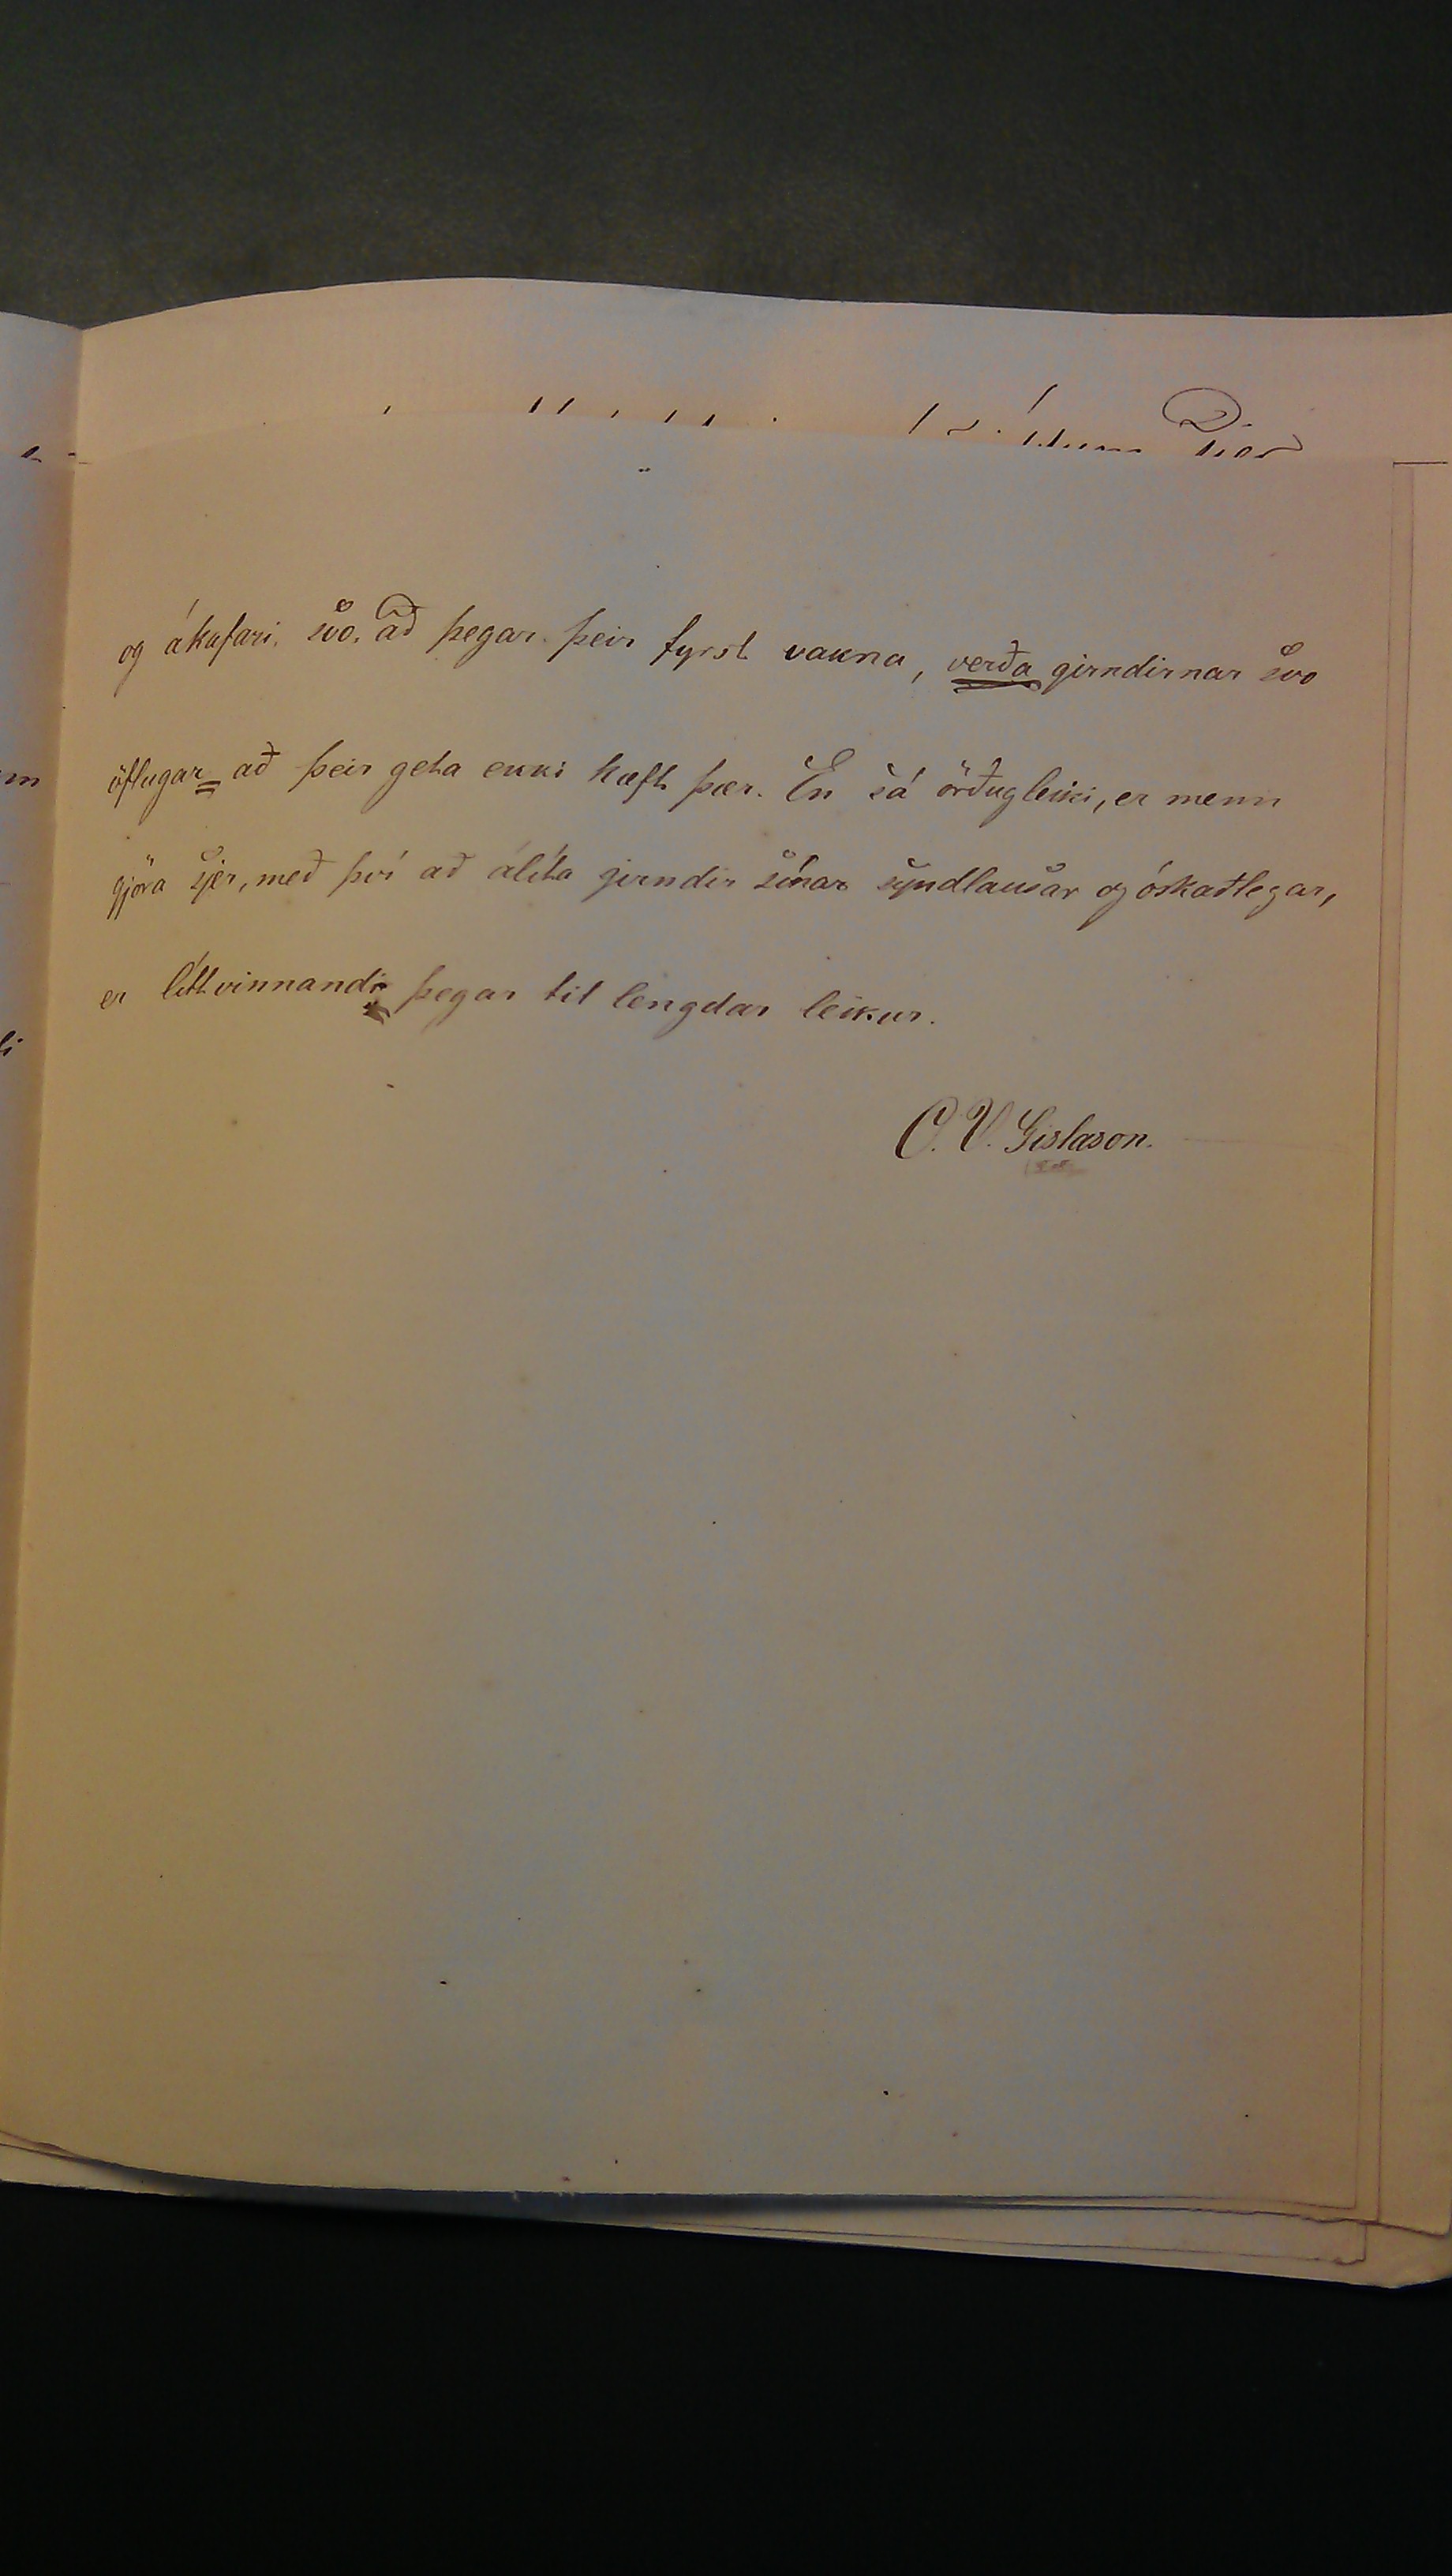 og ákafari, svo, að þegar þeir fyrst vakna, verða girndirnar svo
öflugar að þeir geta ekki hæft þær. En sá örðugleiki, er menn
gjöra sjer, með því að álíta girndir sínar syndlausar og óskaðlegar,
er lítt vinnandi þegar til lengdar leikur.
O. V. Gislason.